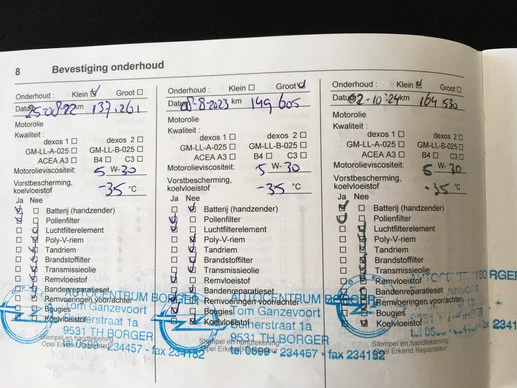 8 Bevestiging onderhoud
Onderhoud : Klein Groot
Datum 25-08-22 km 137.261
Motorolie
Kwaliteit :
dexos 1 dexos 2
GM-LL-A-025 GM-LL-B-025
ACEA A3 B4 C3
Motorolieviscositeit: 5 W- 30
Vorstbescherming, koelvloeistof -35 °C
Ja Nee
Batterij (handzender)
Pollenfilter
Luchtfilterelement
Poly-V-riem
Tandriem
Brandstoffilter
Transmissieolie
Remvloeistof
Bandenreparatieset
Remvoeringen voor/achter
Bougies
Koelvloeistof
Stempel en handtekening
Opel Erkend Reparateur
AUTOCENTRUM BORGER
Tom Ganzevoort
9531 TH BORGER
tel. 0599 - 234457 - fax 234182
Onderhoud : Klein Groot
Datum 8-2023 km 149 605
Motorolie
Kwaliteit :
dexos 1 dexos 2
GM-LL-A-025 GM-LL-B-025
ACEA A3 B4 C3
Motorolieviscositeit: 5 W- 30
Vorstbescherming, koelvloeistof -35 °C
Ja Nee
Batterij (handzender)
Pollenfilter
Luchtfilterelement
Poly-V-riem
Tandriem
Brandstoffilter
Transmissieolie
Remvloeistof
Bandenreparatieset
Remvoeringen voor/achter
Bougies
Koelvloeistof
Stempel en handtekening
Opel Erkend Reparateur
AUTOCENTRUM BORGER
Tom Ganzevoort
9531 TH BORGER
tel. 0599 - 234457 - fax 234182
Onderhoud : Klein Groot
Datum 02-10-24 km 164 530
Motorolie
Kwaliteit :
dexos 1 dexos 2
GM-LL-A-025 GM-LL-B-025
ACEA A3 B4 C3
Motorolieviscositeit: 5 W- 30
Vorstbescherming, koelvloeistof -35 °C
Ja Nee
Batterij (handzender)
Pollenfilter
Luchtfilterelement
Poly-V-riem
Tandriem
Brandstoffilter
Transmissieolie
Remvloeistof
Bandenreparatieset
Remvoeringen voor/achter
Bougies
Koelvloeistof
Stempel en handtekening
Opel Erkend Reparateur